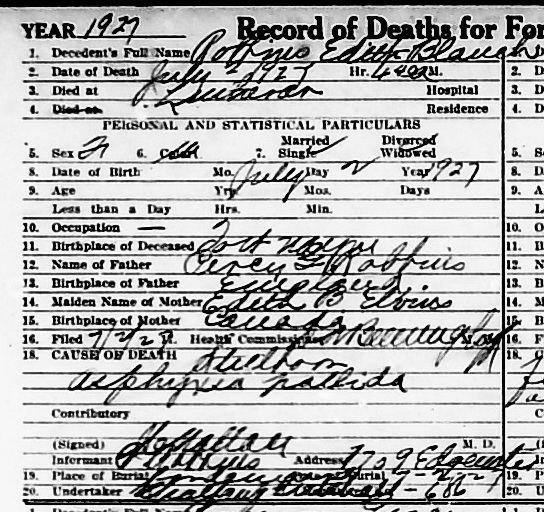 YEAR 1927 Record of Deaths for For
1. Decedent's Full Name Robbins Edith Blanch
2. Date of Death July 2 1927 Hr. M.
3. Died at Lutheran Hospital
4. Died at Residence
PERSONAL AND STATISTICAL PARTICULARS
Married Divorced
5. Sex F 6. Color W 7. Single Widowed
8. Date of Birth Mo. July Day 2 Year 1927
9. Age Yrs. Mos. Days
Less than a Day Hrs. Min.
10. Occupation —
11. Birthplace of Deceased Fort Wayne
12. Name of Father Percy F Robbins
13. Birthplace of Father England
14. Maiden Name of Mother Edith B Elvins
15. Birthplace of Mother Canada
16. Filed 7/2/27 Health Commissioner M. D.
18. CAUSE OF DEATH Stillborn
asphyxia pallida
Contributory
(Signed) M. D.
Informant P Robbins Address 1709 Edgewater
19. Place of Burial Date of Burial
20. Undertaker